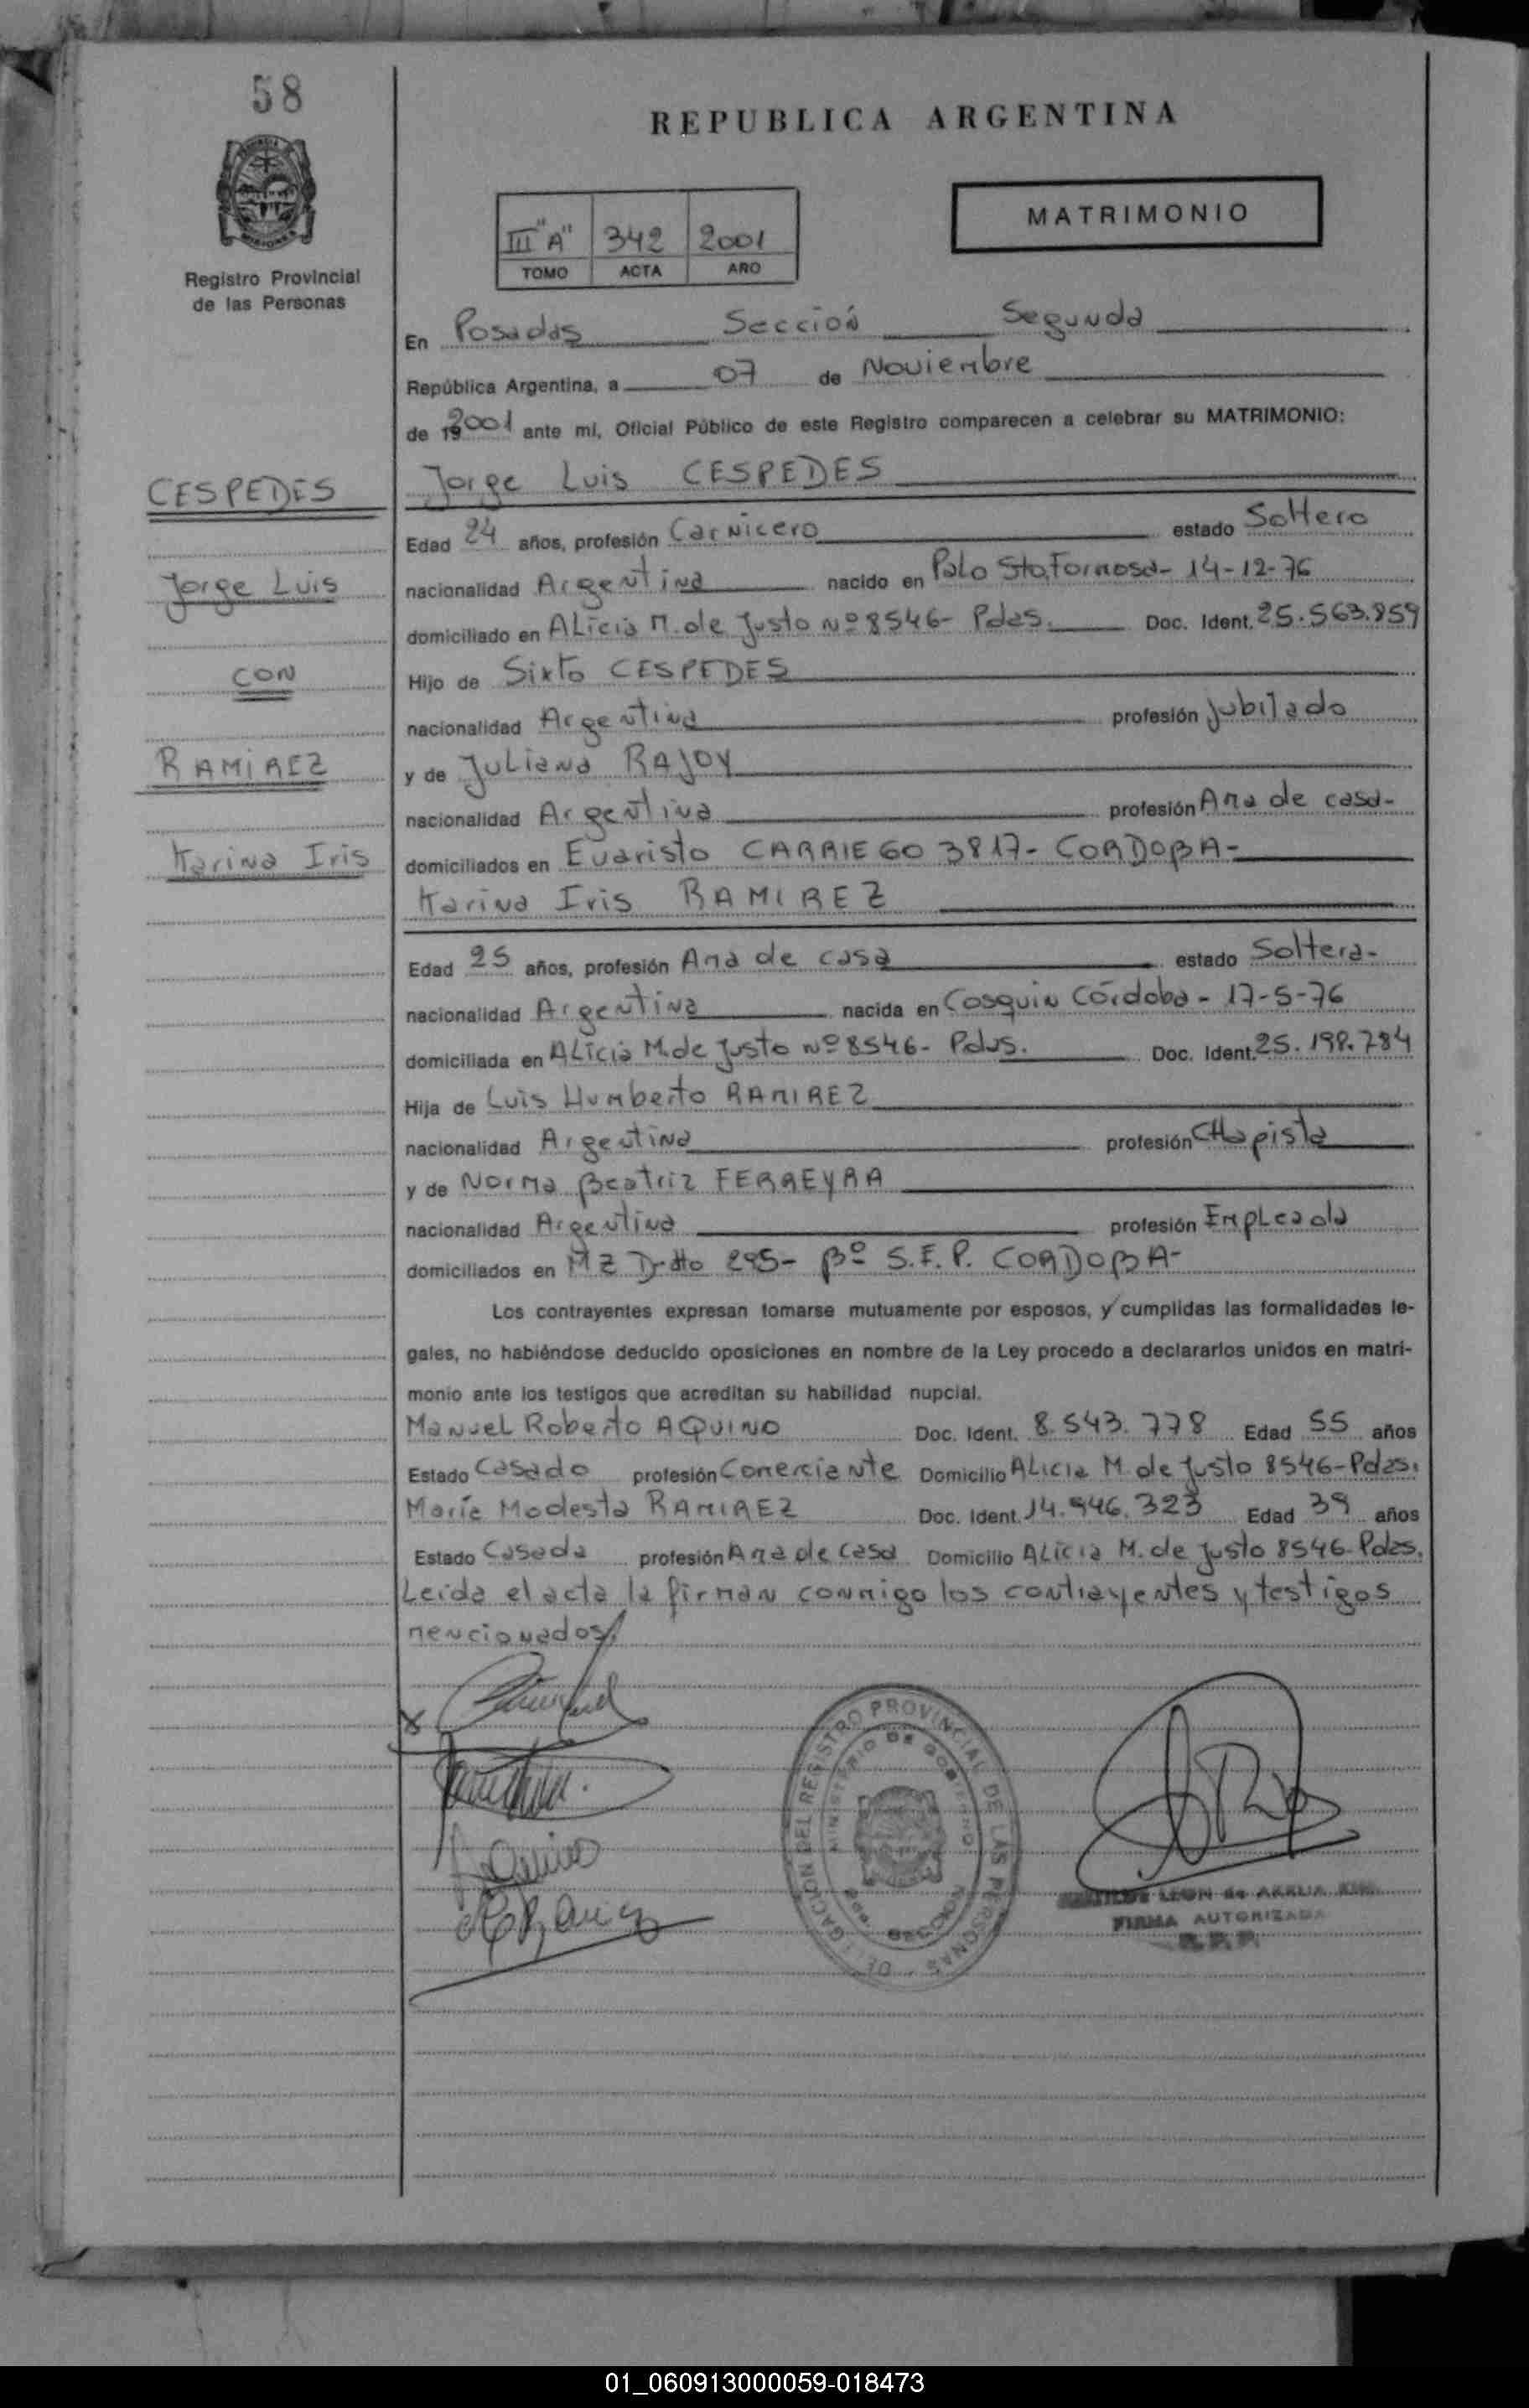 58
REPUBLICA ARGENTINA
MATRIMONIO
III "A" 342 2001
TOMO ACTA AÑO
Registro Provincial
de las Personas
En Posadas Sección Segunda
República Argentina, a 07 de Noviembre
de 192001 ante mí, Oficial Público de este Registro comparecen a celebrar su MATRIMONIO:
CESPEDES
Jorge Luis
CON
RAMIREZ
Karina Iris
Jorge Luis CESPEDES
Edad 24 años, profesión Carnicero estado Soltero
nacionalidad Argentina nacido en Palo Sto, Formosa- 14-12-76
domiciliado en Alicia M. de Justo Nº 8546- Pdas. Doc. Ident. 25.563.859
Hijo de Sixto CESPEDES
nacionalidad Argentina profesión Jubilado
y de Juliana RAJOY
nacionalidad Argentina profesión Ama de casa-
domiciliados en Evaristo CARRIEGO 3817- CORDOBA-
Karina Iris RAMIREZ
Edad 25 años, profesión Ama de casa estado Soltera-
nacionalidad Argentina nacida en Cosquin Córdoba- 17-5-76
domiciliada en Alicia M. de Justo Nº 8546- Pdas. Doc. Ident. 25.198.784
Hija de Luis Humberto RAMIREZ
nacionalidad Argentina profesión CHapista
y de Norma Beatriz FERREYRA
nacionalidad Argentina profesión Empleada
domiciliados en MZ D-tto 295- Bº S.E.P. CORDOBA-
Los contrayentes expresan tomarse mutuamente por esposos, y cumplidas las formalidades le-
gales, no habiéndose deducido oposiciones en nombre de la Ley procedo a declararlos unidos en matri-
monio ante los testigos que acreditan su habilidad nupcial.
Manuel Roberto AQUINO Doc. Ident. 8.543.778 Edad 55 años
Estado Casado profesión Comerciante Domicilio Alicia M. de Justo 8546-Pdas.
María Modesta RAMIREZ Doc. Ident. 14.946.323 Edad 39 años
Estado Casada profesión Ama de casa Domicilio Alicia M. de Justo 8546-Pdas.
Leida el acta la firman conmigo los contrayentes y testigos
mencionados.
DELEGACION DEL REGISTRO PROVINCIAL DE LAS PERSONAS
MINISTERIO DE GOBIERNO
LEON de
FIRMA AUTORIZADA
R. P. P.
01_060913000059-018473